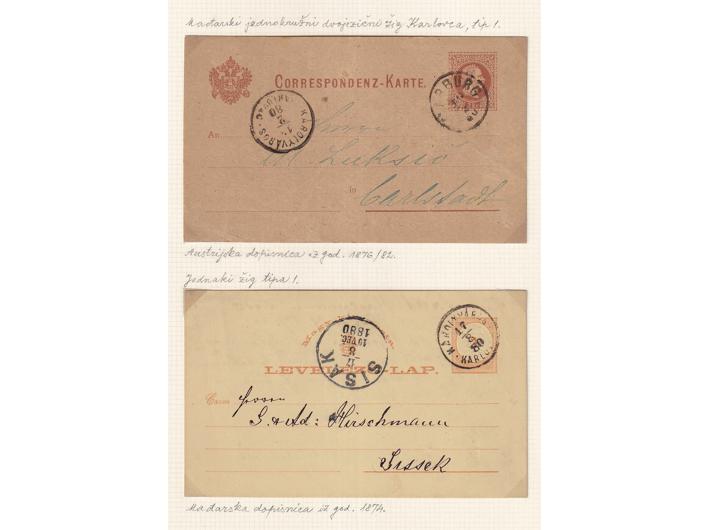 Mađarski jednokružni dvojezični žig Karlovca, tip 1.
CORRESPONDENZ-KARTE.
KÁROLYVÁROS
80
An
Herrn
M. Luksić
in
Carlstadt
Austrijska dopisnica iz god. 1876/82.
Jednaki žig tipa 1.
KÁROLYVÁR
17
8
80
KARLO
SISAK
17
8
1880
LEVELEZ LAP.
Herrn
S. & Ad: Hirschmann
Sissek
Mađarska dopisnica iz god. 1874.